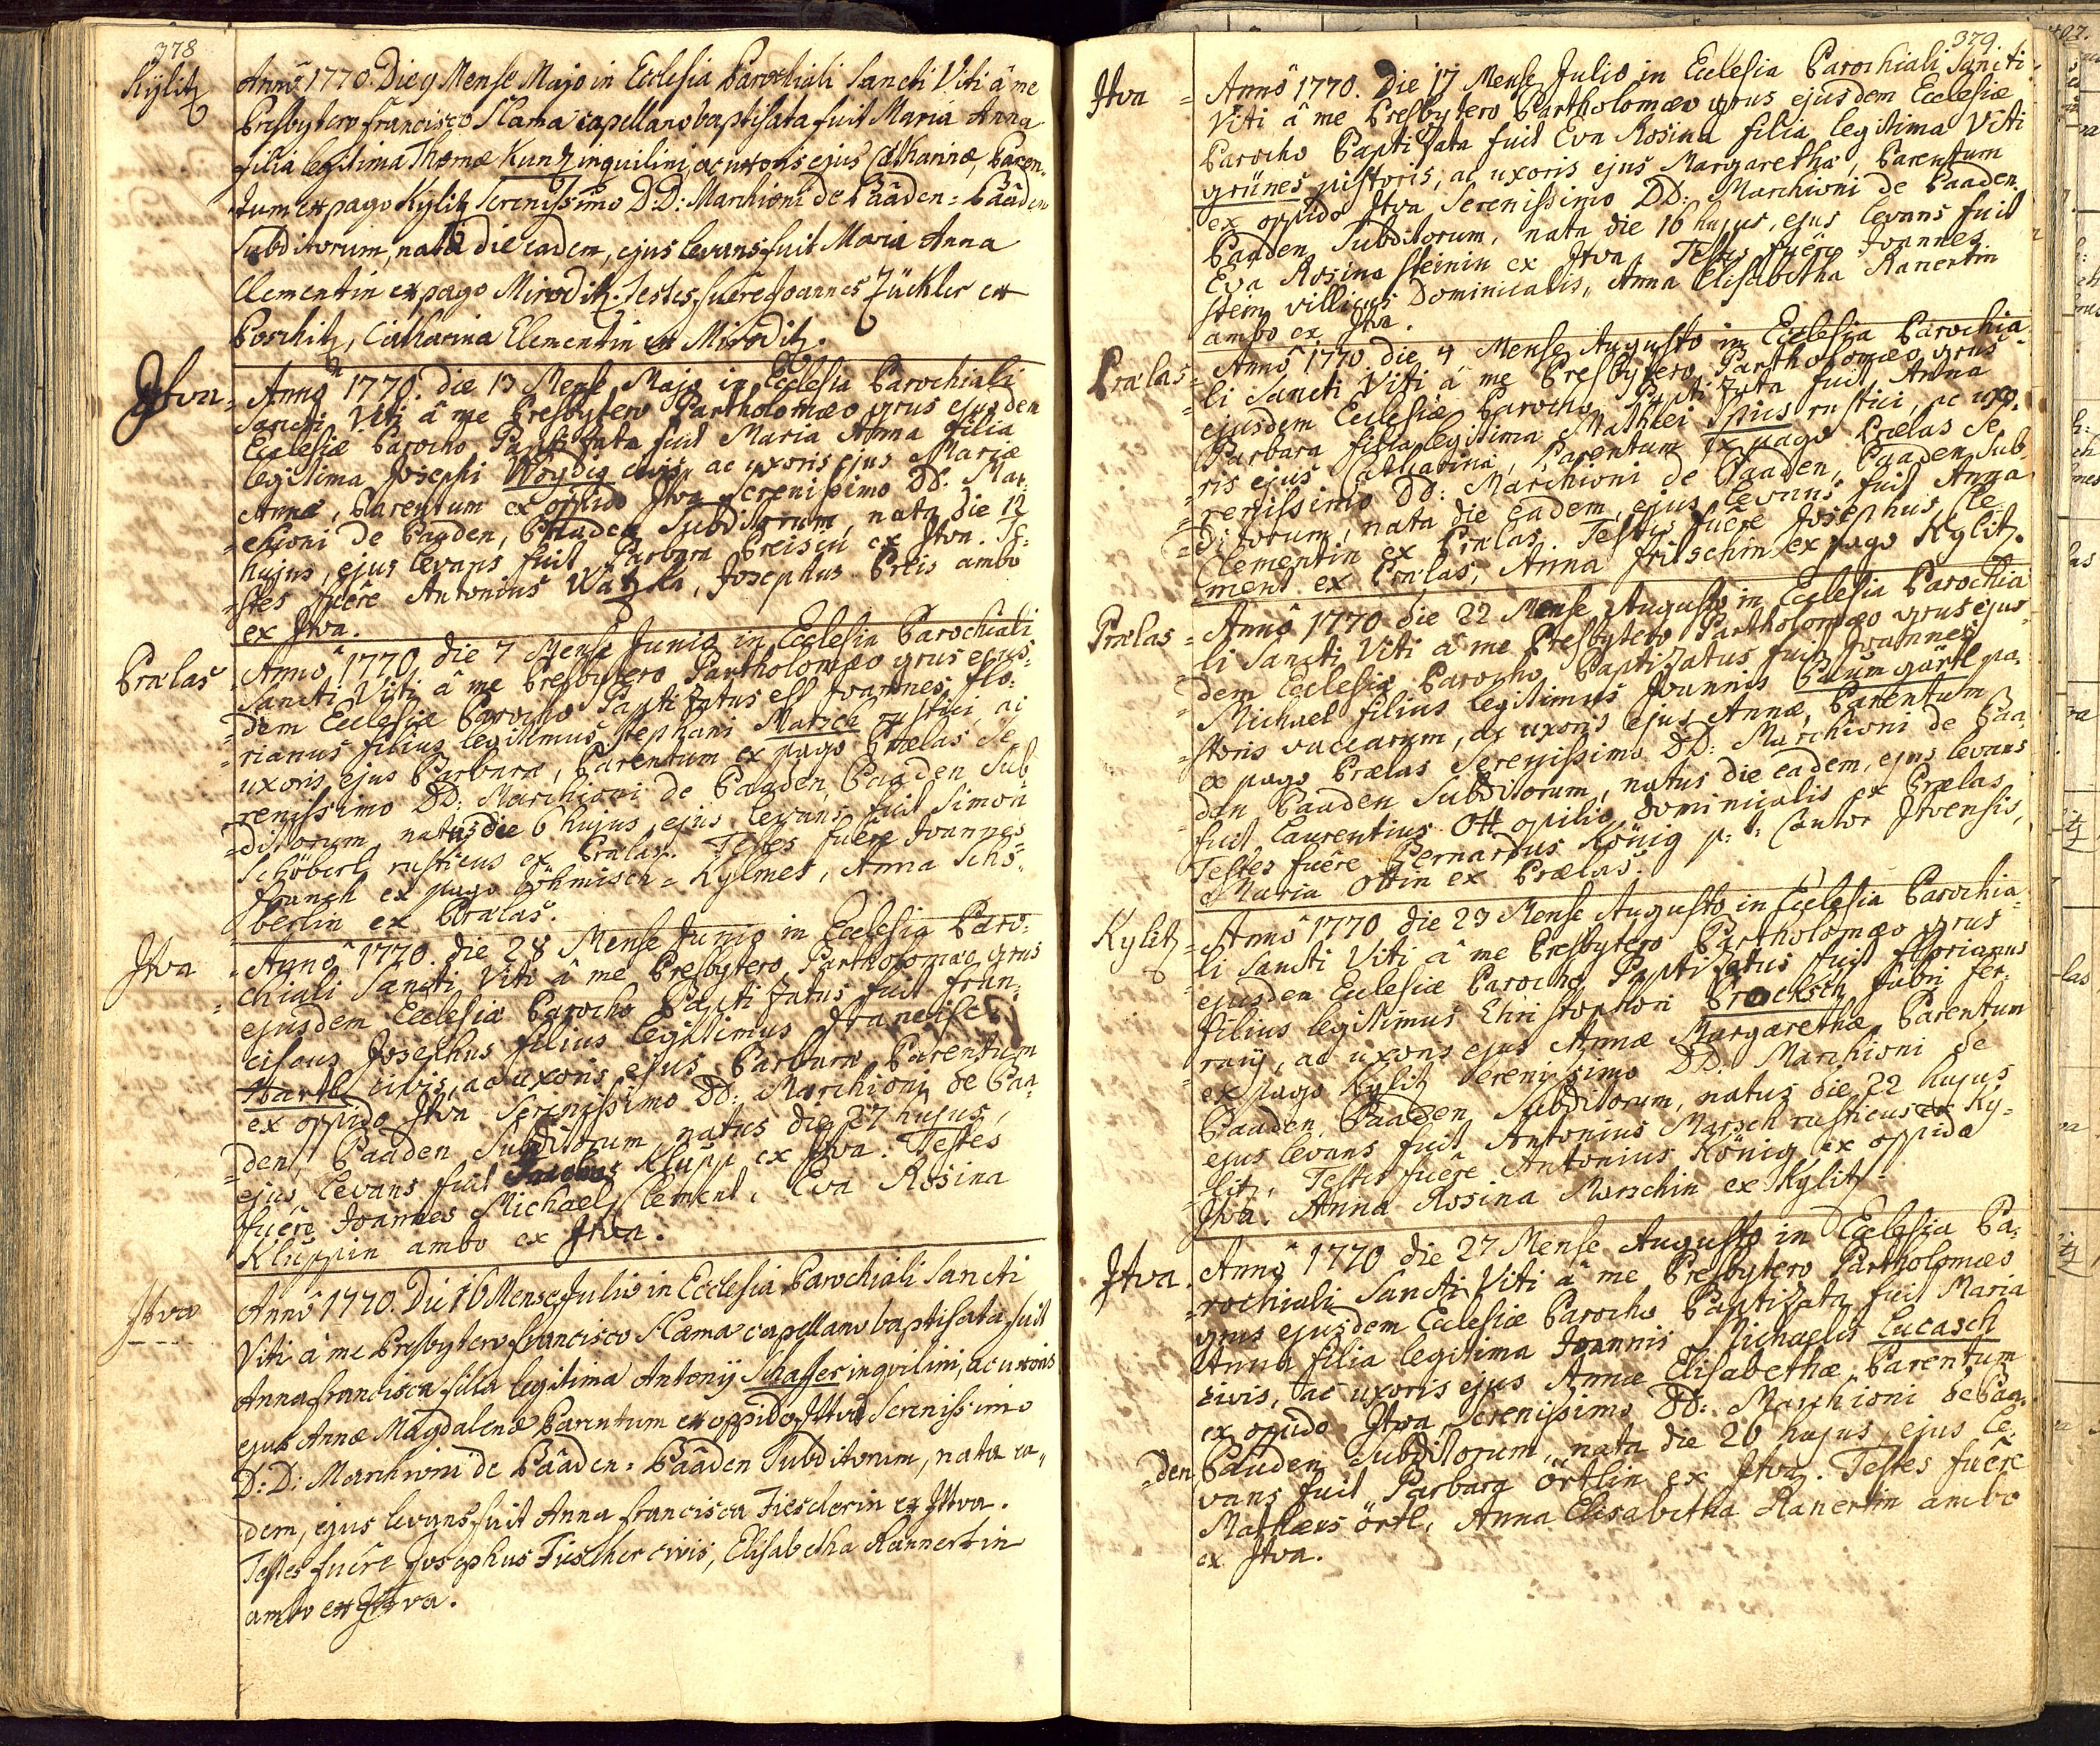 378
Kylitz
Anno 1770. Die 9 Mense Majo in Ecclesia Parochiali Sancti Viti â me
Presbytero Francisco Slama capellano baptisata fuit Maria Anna
filia legitima Thomæ Kunz inquilini, ac uxoris ejus Catharinæ, Paren-
tum ex pago Kylitz Serenissimo D:D: Marchioni de Bâaden-Bâaden
Subditorum, nata die eadem, ejus levans fuit Maria Anna
Clementin ex pago Miroditz. Testes fuêre Joannes Züchler ex
Poschitz, Catharina Clementin ex Miroditz.
Jtva
Annô 1770. die 13 Mense Majo in Ecclesia Parochiali
Sancti Viti â me Presbytero Partholomæo grus ejusdem
Ecclesiæ Parocho Paptizata fuit Maria Anna filia
legitima Josephi Woydig civis, ac uxoris ejus Mariæ
Annæ, Parentum ex oppido Jtva Serenissimo DD: Mar-
chioni de Paaden, Paaden Subditorum, nata die 12
hujus, ejus levans fuit Parbara Preisin ex Jtva. Te-
stes fuêre Antonius Watzka, Josephus Preis ambo
ex Jtva.
Prælas
Annô 1770. die 7 Mense Junio in Ecclesia Parochiali
Sancti Viti â me Presbytero Partholomæo grus ejus-
dem Ecclesiæ Parocho Paptizatus est Joannes Flo-
rianus filius legitimus Stephani Marsch rustici, ac
uxoris ejus Parbaræ, Parentum ex pago Prælas Se-
renissimo DD: Marchioni de Paaden, Paaden Sub-
ditorum, natus die 6 hujus, ejus levans fuit Simon
Schöberl rusticus ex Prælas. Testes fuêre Joannes
Franck ex pago Böhmisch-Kylmes, Anna Schö-
berlin ex Prælas.
Jtva
Annô 1770. die 28 Mense Junio in Ecclesia Paro-
chiali Sancti Viti â me Presbytero Partholomæo grus
ejusdem Ecclesiæ Parocho Paptizatus fuit Fran-
ciscus Josephus filius legitimus Francisci
Hartl civis, ac uxoris ejus Parbaræ, Parentum
ex oppido Jtva Serenissimo DD: Marchioni de Paa-
den, Paaden Subditorum, natus die 27 hujus,
ejus levans fuit Jacobus Klupp ex Jtva. Testes
fuêre Joannes Michael Clement, Eva Rosina
Kluppin ambo ex Jtva.
Jtva
Annô 1770. Die 16 Mense Julio in Ecclesia Parochiali Sancti
Viti â me Presbytero Francisco Slama capellano baptisata fuit
Anna Francisca filia legitima Antonij Schaffer inqvilini, ac uxoris
ejus Annæ Magdalenæ Parentum ex oppido Jttva Serenissimo
D:D: Marchioni de Bâaden-Bâaden Subditorum, nata ea-
dem, ejus levans fuit Anna Francisca Fiescherin ex Jttva.
Testes fuêre Josephus Fiescher civis, Elisabetha Rannertin
ambo ex Jttva.
379.
Jtva
Annô 1770. Die 17 Mense Julio in Ecclesia Parochiali Sancti
Viti â me Presbytero Partholomæo grus ejusdem Ecclesiæ
Parocho Paptizata fuit Eva Rosina filia legitima Viti
grünes pistoris, ac uxoris ejus Margarethæ, Parentum
ex oppido Jtva Serenissimo DD: Marchioni de Paaden,
Paaden Subditorum, nata die 16 hujus, ejus levans fuit
Eva Rosina Steinin ex Jtva. Testes fuêre Joannes
Stein villicus Dominicalis, Anna Elisabetha Ranertin
ambo ex Jtva.
Prælas
Annô 1770 die 4 Mense Augusto in Ecclesia Parochia-
li Sancti Viti â me Presbytero Partholomæo grus
ejusdem Ecclesiæ Parocho Paptizata fuit Anna
Parbara filia legitima Mathæi Spies rustici, ac uxo-
ris ejus Catharinæ, Parentum ex pago Prælas Se-
renissimo DD: Marchioni de Paaden, Paaden Sub-
ditorum, nata die eadem, ejus levans fuit Anna
Clementin ex Prælas. Testes fuêre Josephus Cle-
ment ex Prælas, Anna Fritschin ex pago Kylitz.
Prælas
Annô 1770 die 22 Mense Augusto in Ecclesia Parochia-
li Sancti Viti â me Presbytero Partholomæo grus ejus-
dem Ecclesiæ Parocho Paptizatus fuit Joannes
Michael filius legitimus Joannis Paumgärtl pa-
storis vaccarum, ac uxoris ejus Annæ, Parentum
ex pago Prælas Serenissimo DD: Marchioni de Paa-
den Paaden Subditorum, natus die eadem, ejus levans
fuit Laurentius Ott opilio dominicalis ex Prælas,
Testes fuêre Bernardus König p: t: Cantor Jtvensis,
Maria Ottin ex Prælas.
Kylitz
Annô 1770 die 23 Mense Augusto in Ecclesia Parochia-
li Sancti Viti â me Presbytero Partholomæo grus
ejusdem Ecclesiæ Parocho Paptizatus fuit Florianus
filius legitimus Christophori Procksch fabri fer-
rarij, ac uxoris ejus Annæ Margarethæ Parentum
ex pago Kylitz Serenissimo DD: Marchioni de
Paaden, Paaden Subditorum, natus die 22 hujus
ejus levans fuit Antonius Marsch rusticus ex Ky-
litz, Testes fuêre Antonius König ex oppido
Jtva. Anna Rosina Marschin ex Kylitz.
Jtva.
Annô 1770 die 27 Mense Augusto in Ecclesia Pa-
rochiali Sancti Viti â me Presbytero Partholomæo
grus ejusdem Ecclesiæ Parocho Paptizata fuit Maria
Anna filia legitima Joannis Michaelis Lucasch
civis, ac uxoris ejus Annæ Elisabethæ, Parentum
ex opido Jtva, Serenissimo DD: Marchioni de Paa-
den Paaden Subditorum, nata die 26 hujus, ejus le-
vans fuit Parbara Örtlin ex Jtva. Testes fuêre
Mathæus örtl, Anna Elisabetha Ranertin ambo
ex Jtva.